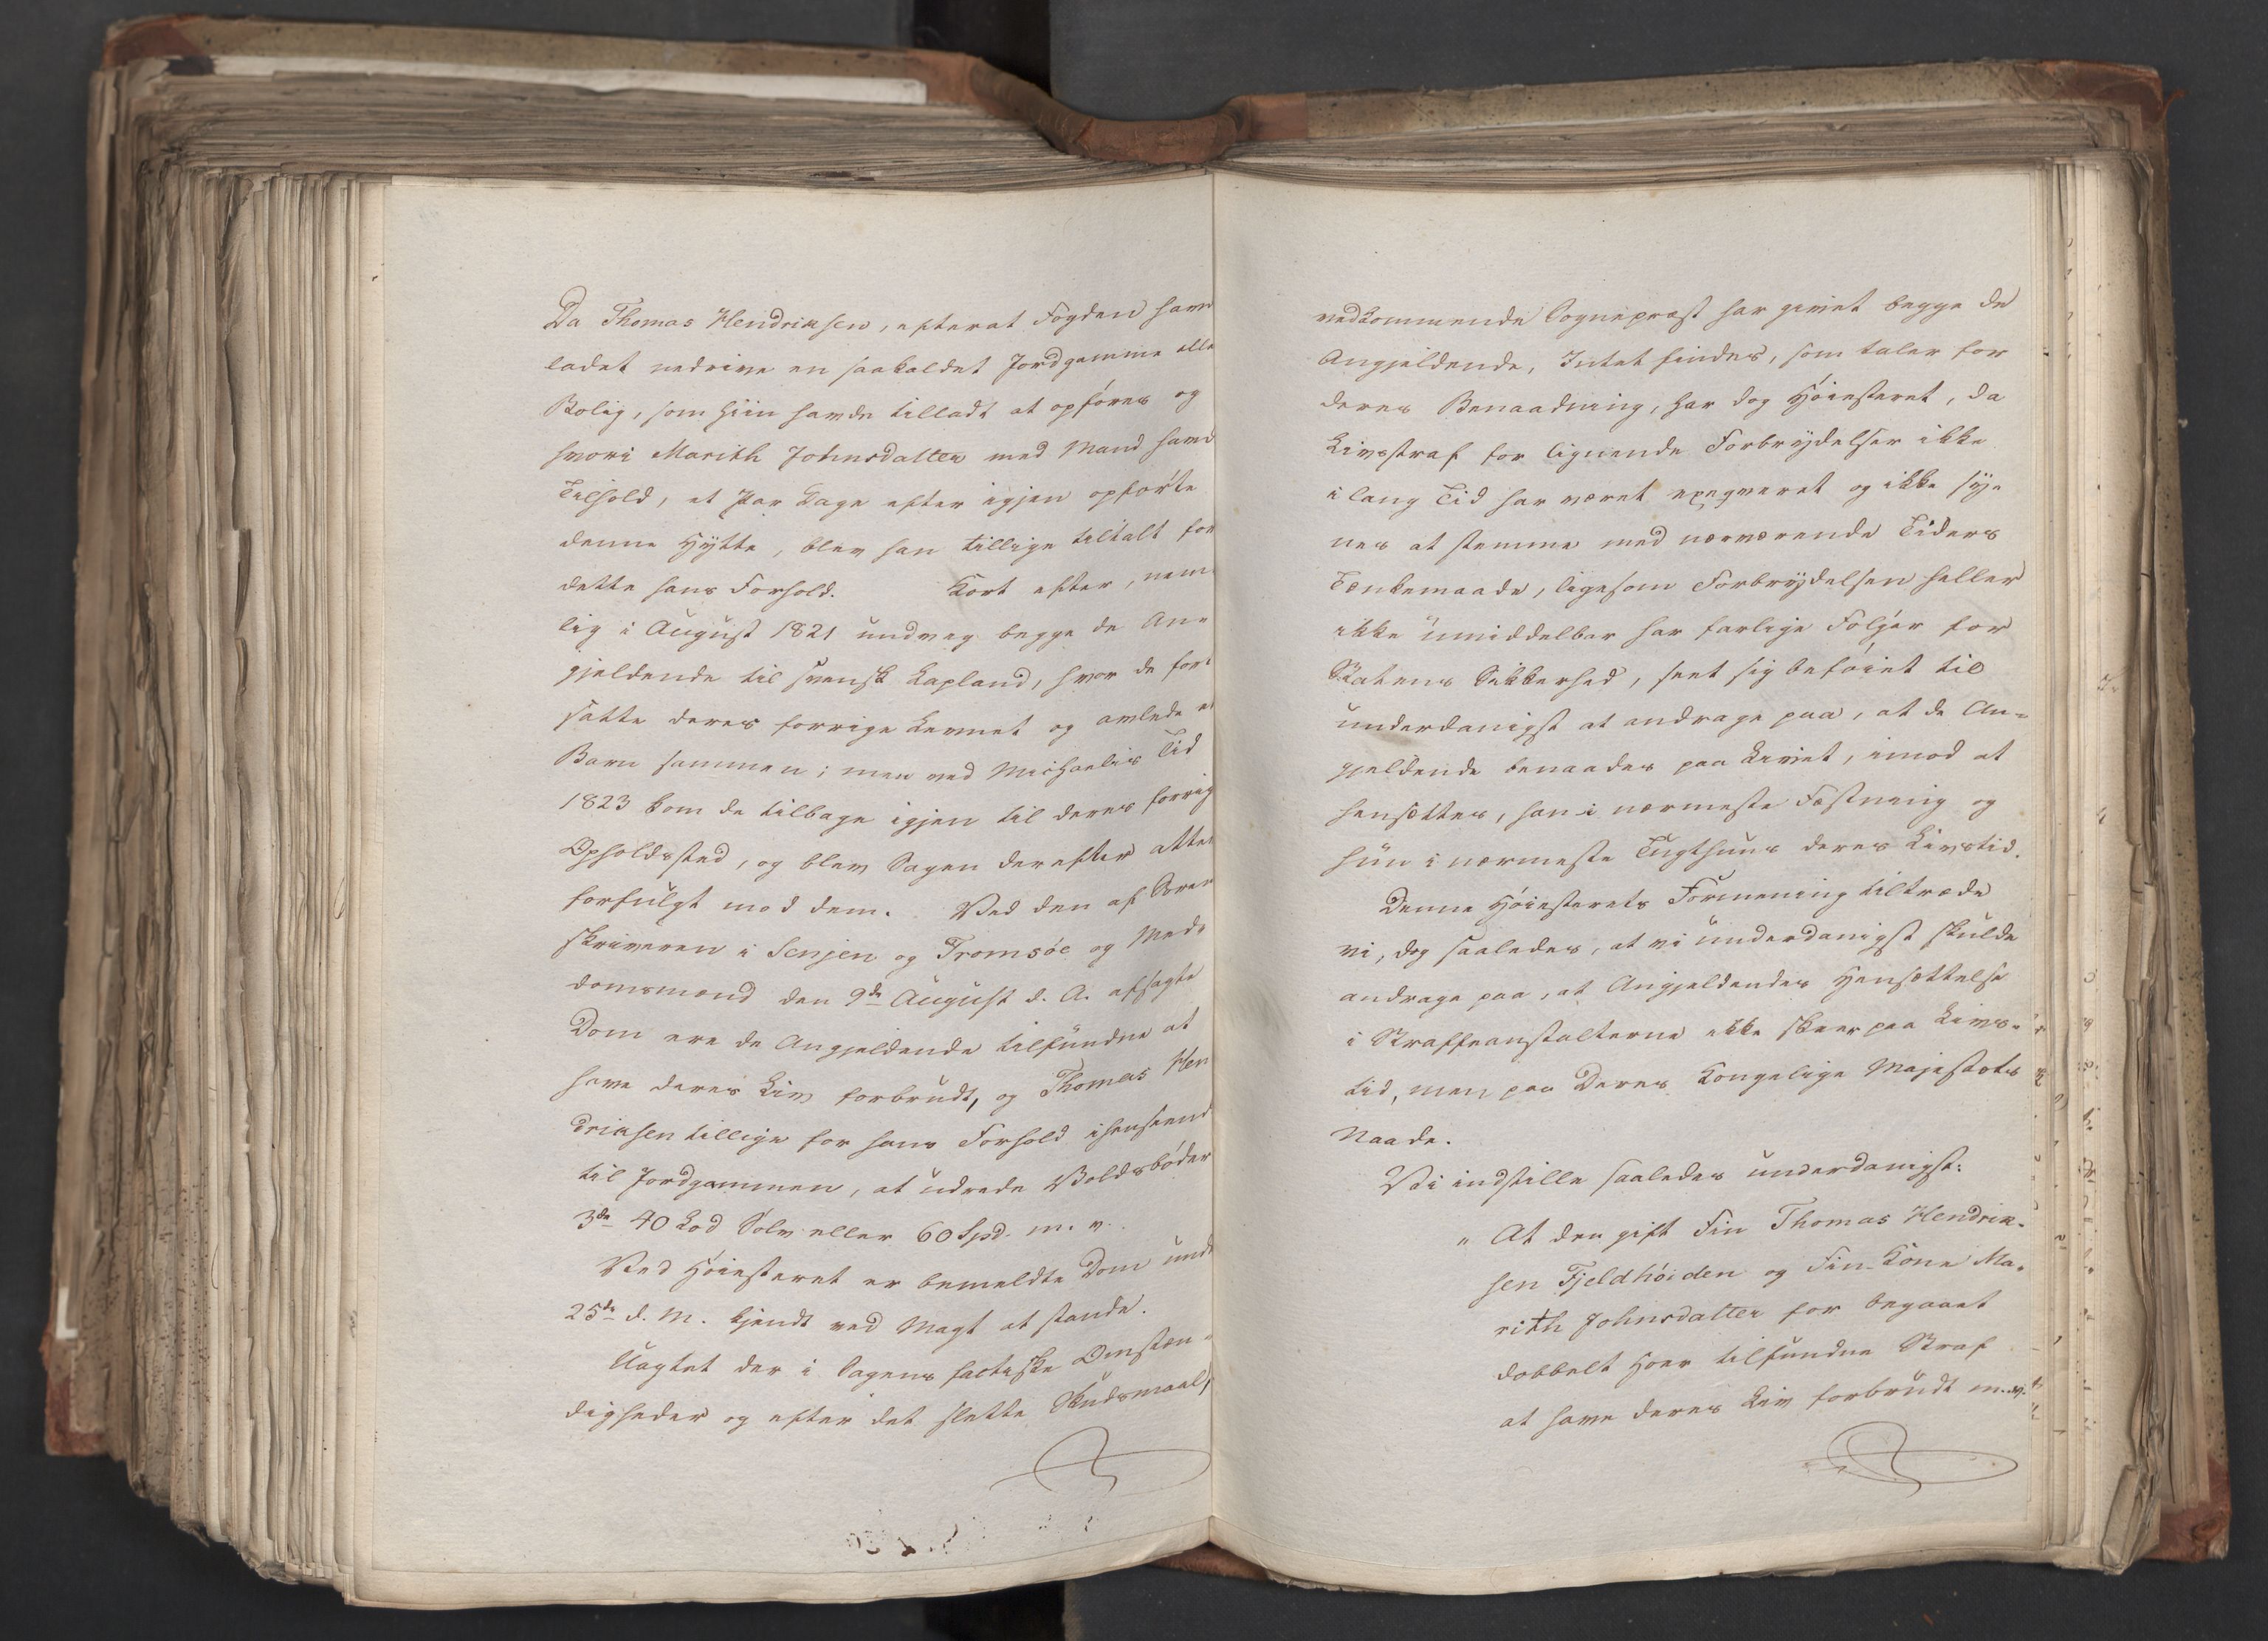 Da Thomas Hendriksen, efterat Fogden havde
ladet nedrive en saakaldet Jordgamme eller
Bolig, som hiin havde tilladt at opføres og
hvori Marith Johnsdatter med Mand havde
Tilhold, et Par Dage efter igjen opførte
denne Hytte, blev han tillige tiltalt for
dette hans Forhold. Kort efter, nem-
lig i August 1821 undveg begge de An-
gjeldende til svensk Lapland, hvor de fort-
satte deres forrige Levnet og avlede et
Barn sammen; men ved Michaelis Tid
1823 kom de tilbage igjen til deres forrige
Opholdssted, og blev Sagen derefter atter
forfulgt mod dem. Ved den af Soren-
skriveren i Senjen og Tromsöe og Med-
domsmænd den 9de August d. A. afsagte
Dom ere de Angjeldende tilfundne at
have deres Liv forbrudt, og Thomas Hen
driksen tillige for hans Forhold i henseende
til Jordgammen, at udrede Voldsbøder
3de 40 Lod Sølv eller 60 Spd. m. v.
Ved Høiesteret er bemeldte Dom under
25de d. M. kjendt ved Magt at stande.
Uagtet der i Sagens factiske Omstæn-
digheder og efter det slette Skudsmaal,
vedkommende Sognepræst har givet begge de
Angjeldende, Intet findes, som taler for
deres Benaadning, har dog Høiesteret, da
Livsstraf for lignende Forbrydelser ikke
i lang Tid har været exeqveret og ikke sy-
nes at stemme med nærværende Tiders
Tænkemaade, ligesom Forbrydelsen heller
ikke umiddelbar har farlige Følger for
Statens Sikkerhed, seet sig beføiet til
underdanigst at andrage paa, at de An-
gjeldende benaades paa Livet, imod at
hensættes, han i nærmeste Fæstning og
hun i nærmeste Tugthuus deres Livstid.
Denne Høiesterets Formening tiltræde
vi, dog saaledes, at vi underdanigst skulde
andrage paa, at Angjeldendes Hensættelse
i Straffeanstalterne ikke skeer paa Livs-
tid, men paa Deres Kongelige Majestæts
Naade.
Vi indstille saaledes underdanigst:
" At den gift Fin Thomas Hendrik-
sen Fjeldhöiden og Fin-Kone Ma-
rith Johnsdatter for begaaet
dobbelt Hoer tilfundne Straf
at have deres Liv forbrudt m. v.